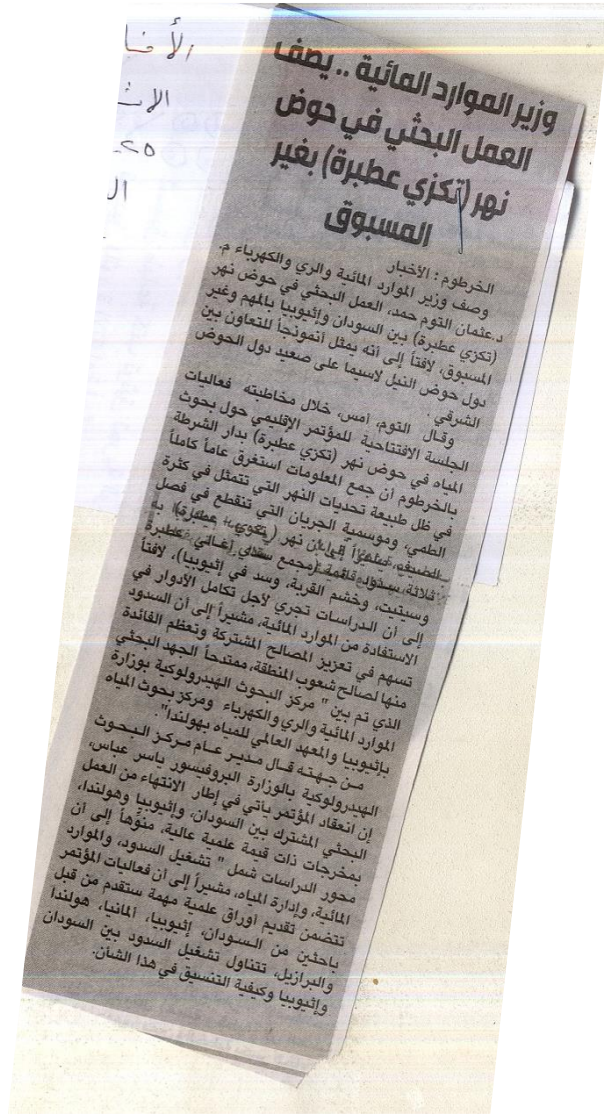 الأخبا
الاثـ
٢٥
الـ
وزير الموارد المائية .. يصف
العمل البحثي في حوض
نهر (تكزي عطبرة) بغير
المسبوق
الخرطوم : الأخبار
وصف وزير الموارد المائية والري والكهرباء م.
د.عثمان التوم حمد، العمل البحثي في حوض نهر
(تكزي عطبرة) بين السودان وإثيوبيا بالمهم وغير
المسبوق، لافتاً إلى أنه يمثل أنموذجاً للتعاون بين
دول حوض النيل لاسيما على صعيد دول الحوض
الشرقي .
وقال التوم، أمس، خلال مخاطبته فعاليات
الجلسة الافتتاحية للمؤتمر الإقليمي حول بحوث
المياه في حوض نهر (تكزي عطبرة) بدار الشرطة
بالخرطوم أن جمع المعلومات استغرق عاماً كاملاً
في ظل طبيعة تحديات النهر التي تتمثل في كثرة
الطمي، وموسمية الجريان التي تنقطع في فصل
الصيف، إلى أن نهر (تكزي عطبرة) به
ثلاثة سدود قائمة (مجمع سدي أعالي عطبرة
وسيتيت، وخشم القربة، وسد في إثيوبيا)، لافتاً
إلى أن الدراسات تجري لأجل تكامل الأدوار في
الاستفادة من الموارد المائية، مشيراً إلى أن السدود
تسهم في تعزيز المصالح المشتركة وتعظم الفائدة
منها لصالح شعوب المنطقة، ممتدحاً الجهد البحثي
الذي تم بين " مركز البحوث الهيدرولوكية بوزارة
الموارد المائية والري والكهرباء ومركز بحوث المياه
بإثيوبيا والمعهد العالمي للمياه بهولندا"
من جهته قال مدير عام مركز البحوث
الهيدرولوكية بالوزارة البروفيسور ياسر عباس،
إن انعقاد المؤتمر يأتي في إطار الانتهاء من العمل
البحثي المشترك بين السودان، وإثيوبيا وهولندا،
بمخرجات ذات قيمة علمية عالية، منوّهاً إلى أن
محور الدراسات شمل " تشغيل السدود، والموارد
المائية، وإدارة المياه، مشيراً إلى أن فعاليات المؤتمر
تتضمن تقديم أوراق علمية مهمة ستقدم من قبل
باحثين من السودان، إثيوبيا، ألمانيا، هولندا
والبرازيل، تتناول تشغيل السدود بين السودان
وإثيوبيا وكيفية التنسيق في هذا الشأن.